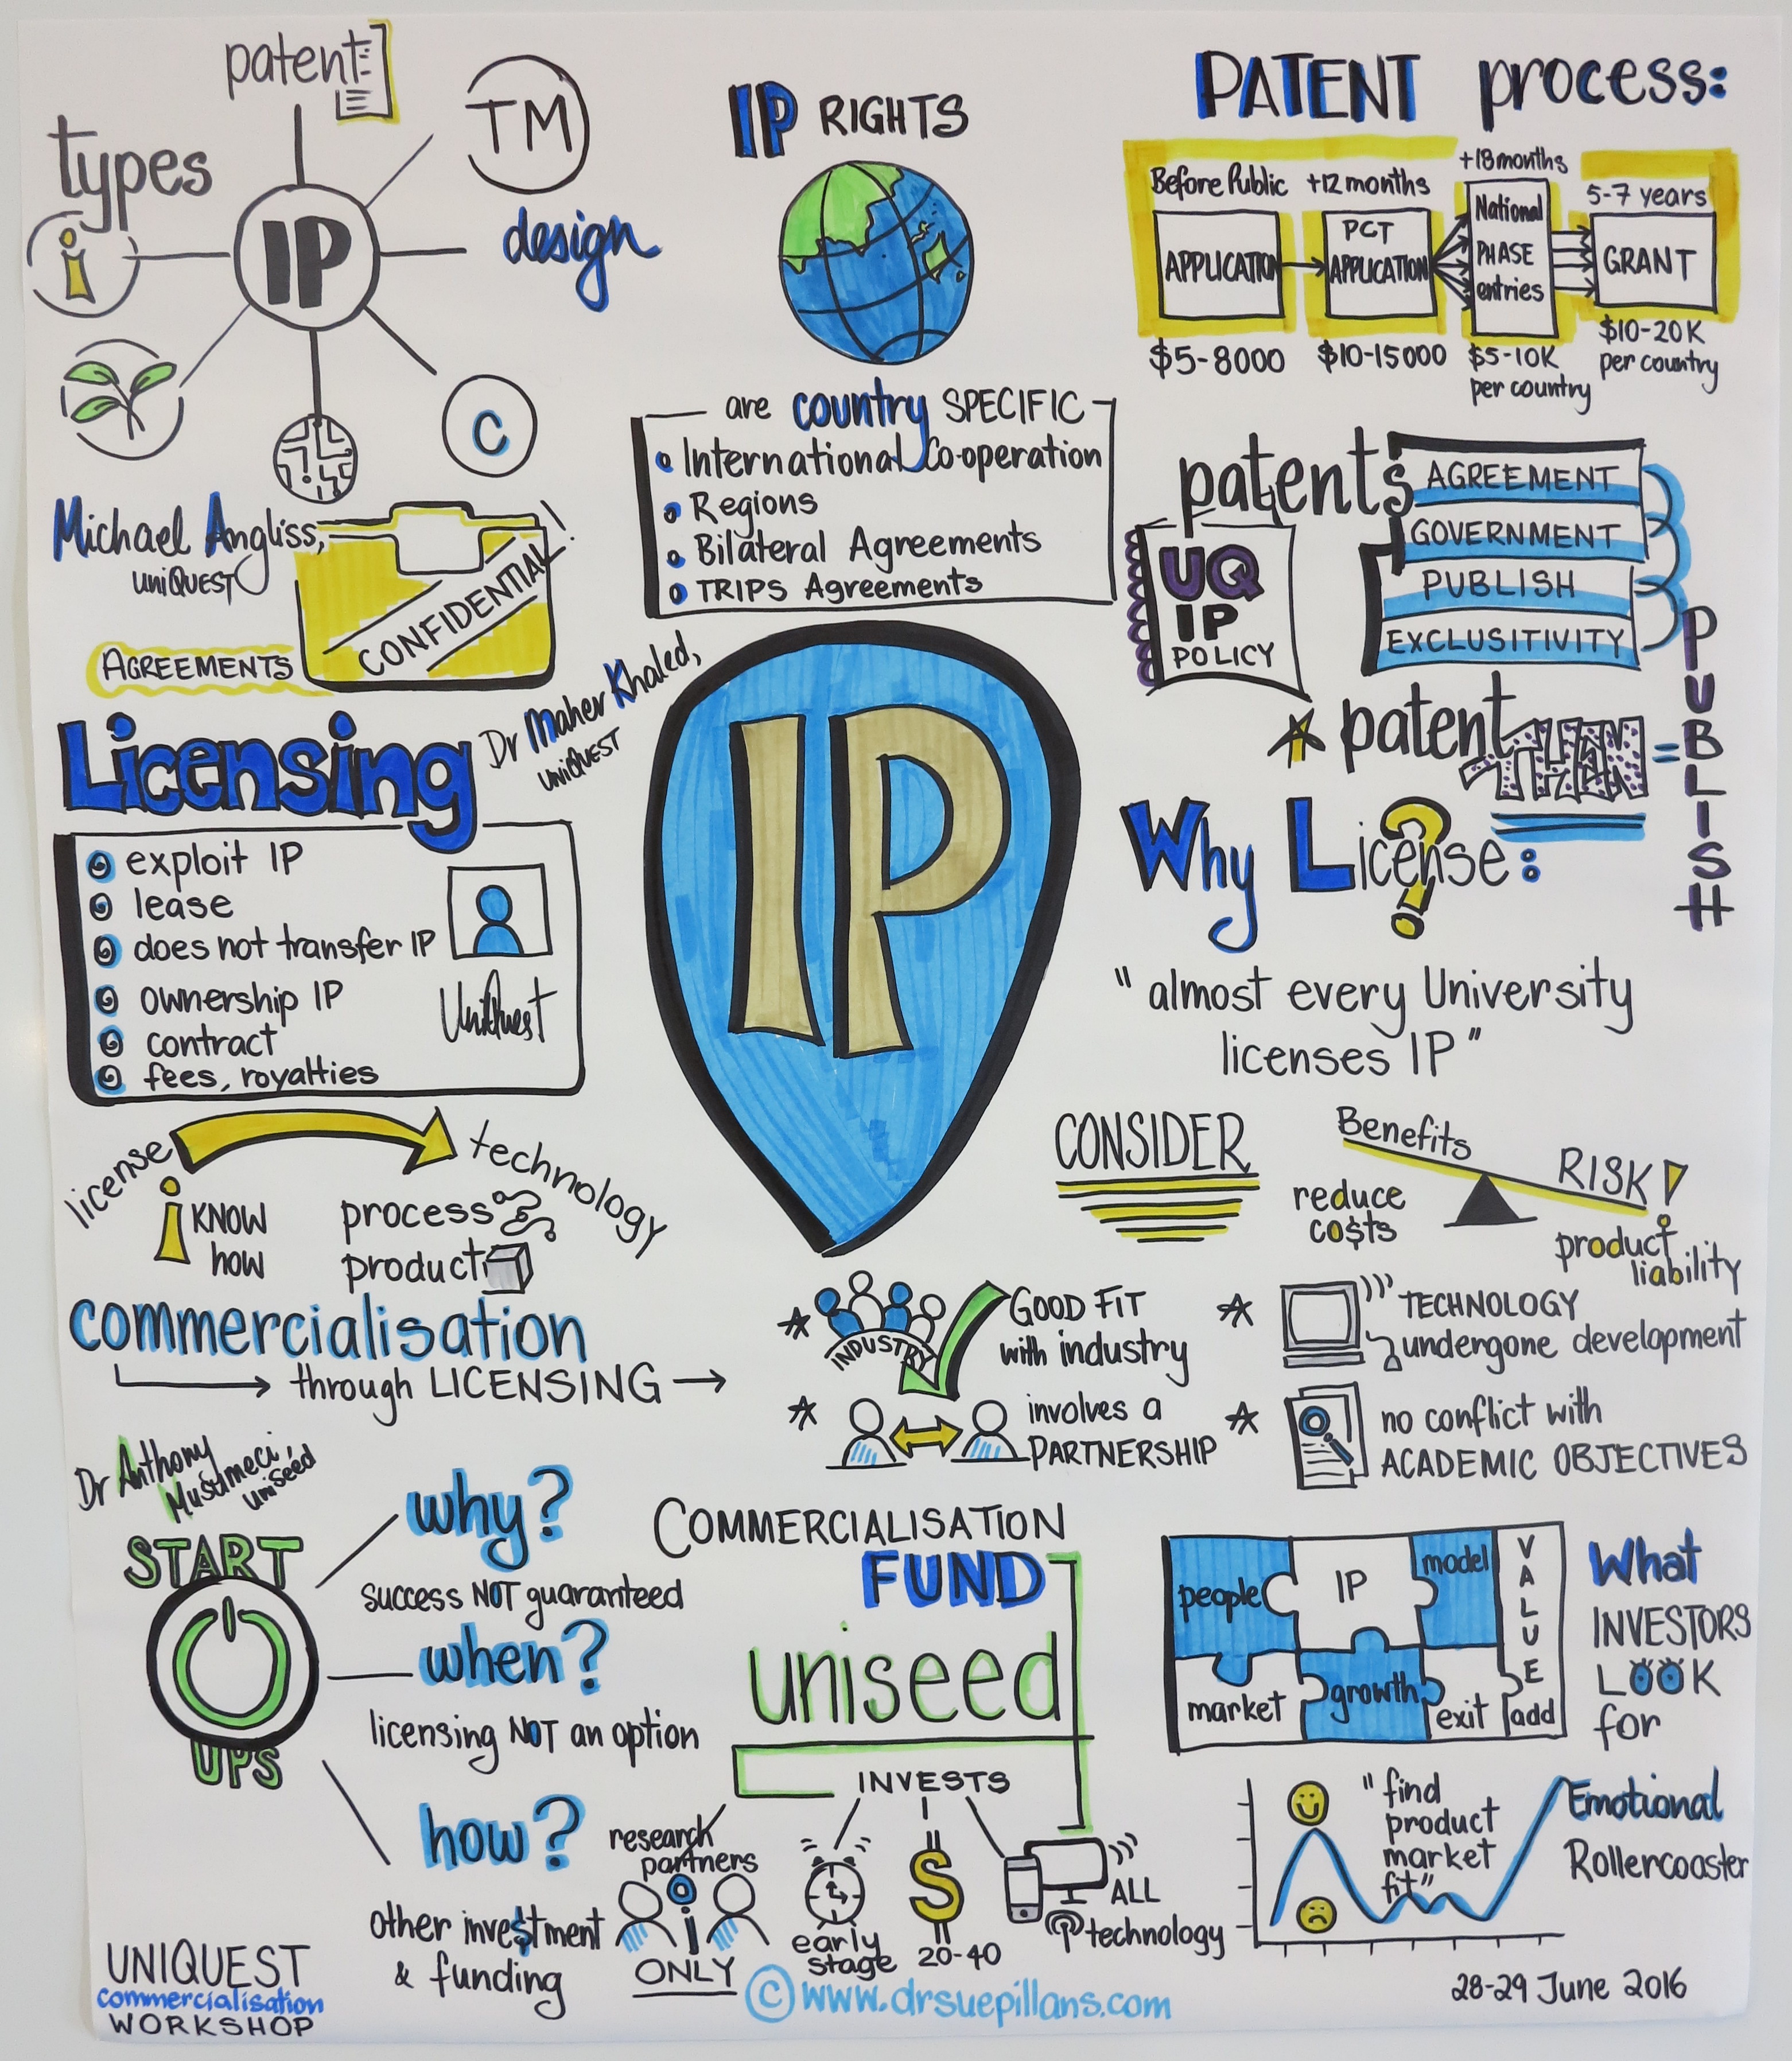 types
patent
TM
design
i
IP
C
Michael Angliss,
UniQUEST
CONFIDENTIAL!
AGREEMENTS
IP RIGHTS
are country SPECIFIC
International Co-operation
Regions
Bilateral Agreements
TRIPS Agreements
PATENT process:
Before Public
APPLICATION
$5-8000
+12 months
PCT
APPLICATION
$10-15000
+18 months
National
PHASE
entries
$5-10K
per country
5-7 years
GRANT
$10-20K
per country
patents
UQ
IP
POLICY
AGREEMENT
GOVERNMENT
PUBLISH
EXCLUSITIVITY
patent THEN = PUBLISH
Licensing
Dr Maher Khaled,
UniQUEST
exploit IP
lease
does not transfer IP
ownership IP
contract
fees, royalties
UniQuest
IP
Why License?:
"almost every University
licenses IP"
license
i KNOW
how
technology
process
product
CONSIDER
Benefits
reduce
co$ts
RISK!
product
liability
commercialisation
through LICENSING
INDUSTRY
GOOD FIT
with industry
involves a
PARTNERSHIP
TECHNOLOGY
undergone development
no conflict with
ACADEMIC OBJECTIVES
Dr Anthony
Musumeci
uniseed
START
UPS
why?
success NOT guaranteed
when?
licensing NOT an option
how?
other inve$tment
& funding
COMMERCIALISATION
FUND
uniseed
INVESTS
research
partners
i
ONLY
early
stage
$
20-40
ALL
technology
people
IP
model
VALUE
add
market
growth
exit
What
INVESTORS
LOOK
for
"find
product
market
fit"
Emotional
Rollercoaster
UNIQUEST
commercialisation
WORKSHOP
© www.drsuepillans.com
28-29 June 2016